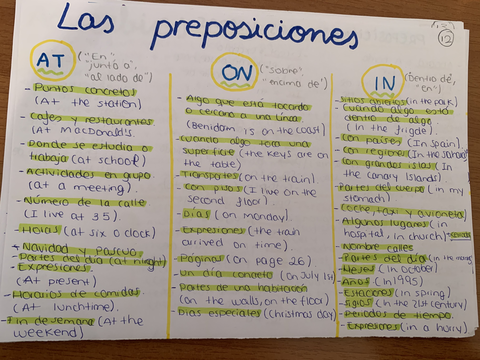 Las preposiciones
12
AT
("En",
junto a",
"al lado de")
- Puntos concretos
(At the station)
- Cafes y restaurantes
(At MacDonald's
- Donde se estudia o
trabaja (at school)
- Actividades en grupo
(at a meeting).
- Número de la calle
(I live at 35).
- Horas (at six o clock)
+ Navidad y Pascua
- Partes del día (at night)
- Expresiones.
(At present)
- Horarios de comidas
(At lunchtime).
- Fin de semana (At the
weekend)
ON
("sobre",
"encima de")
- Algo que está tocando
o cercano a una línea
(Benidorm is on the coast)
- Cuando algo toca una
superficie (the keys are on
the table)
- Transportes (on the train)
- Con pisos (I live on the
second floor).
- Días (on monday).
- Expresiones (the train
arrived on time).
- Páginas (on page 26)
- Un día concreto (on July 1st)
- Partes de una habitación
(on the walls, on the floor)
- Días especiales (christmas day)
IN
(Dentro de,
"en")
- Sitios abiertos (in the park)
- Cuando algo está
dentro de algo
(in the frigde).
- Con países (in Spain).
- Con regiones (In the
- Con grandes islas (In
the canary Islands)
- Partes del cuerpo (in my
stomach)
- Coche, taxi y avionetas
- Algunos lugares (in
hospital, in church)
- Nombre calles
- Partes del día (in the
- Meses (in October)
- Años (in 1995)
- Estaciones (in spring)
- Siglos (in the 21st century)
- Periodos de tiempo.
- Expresiones (in a hurry)